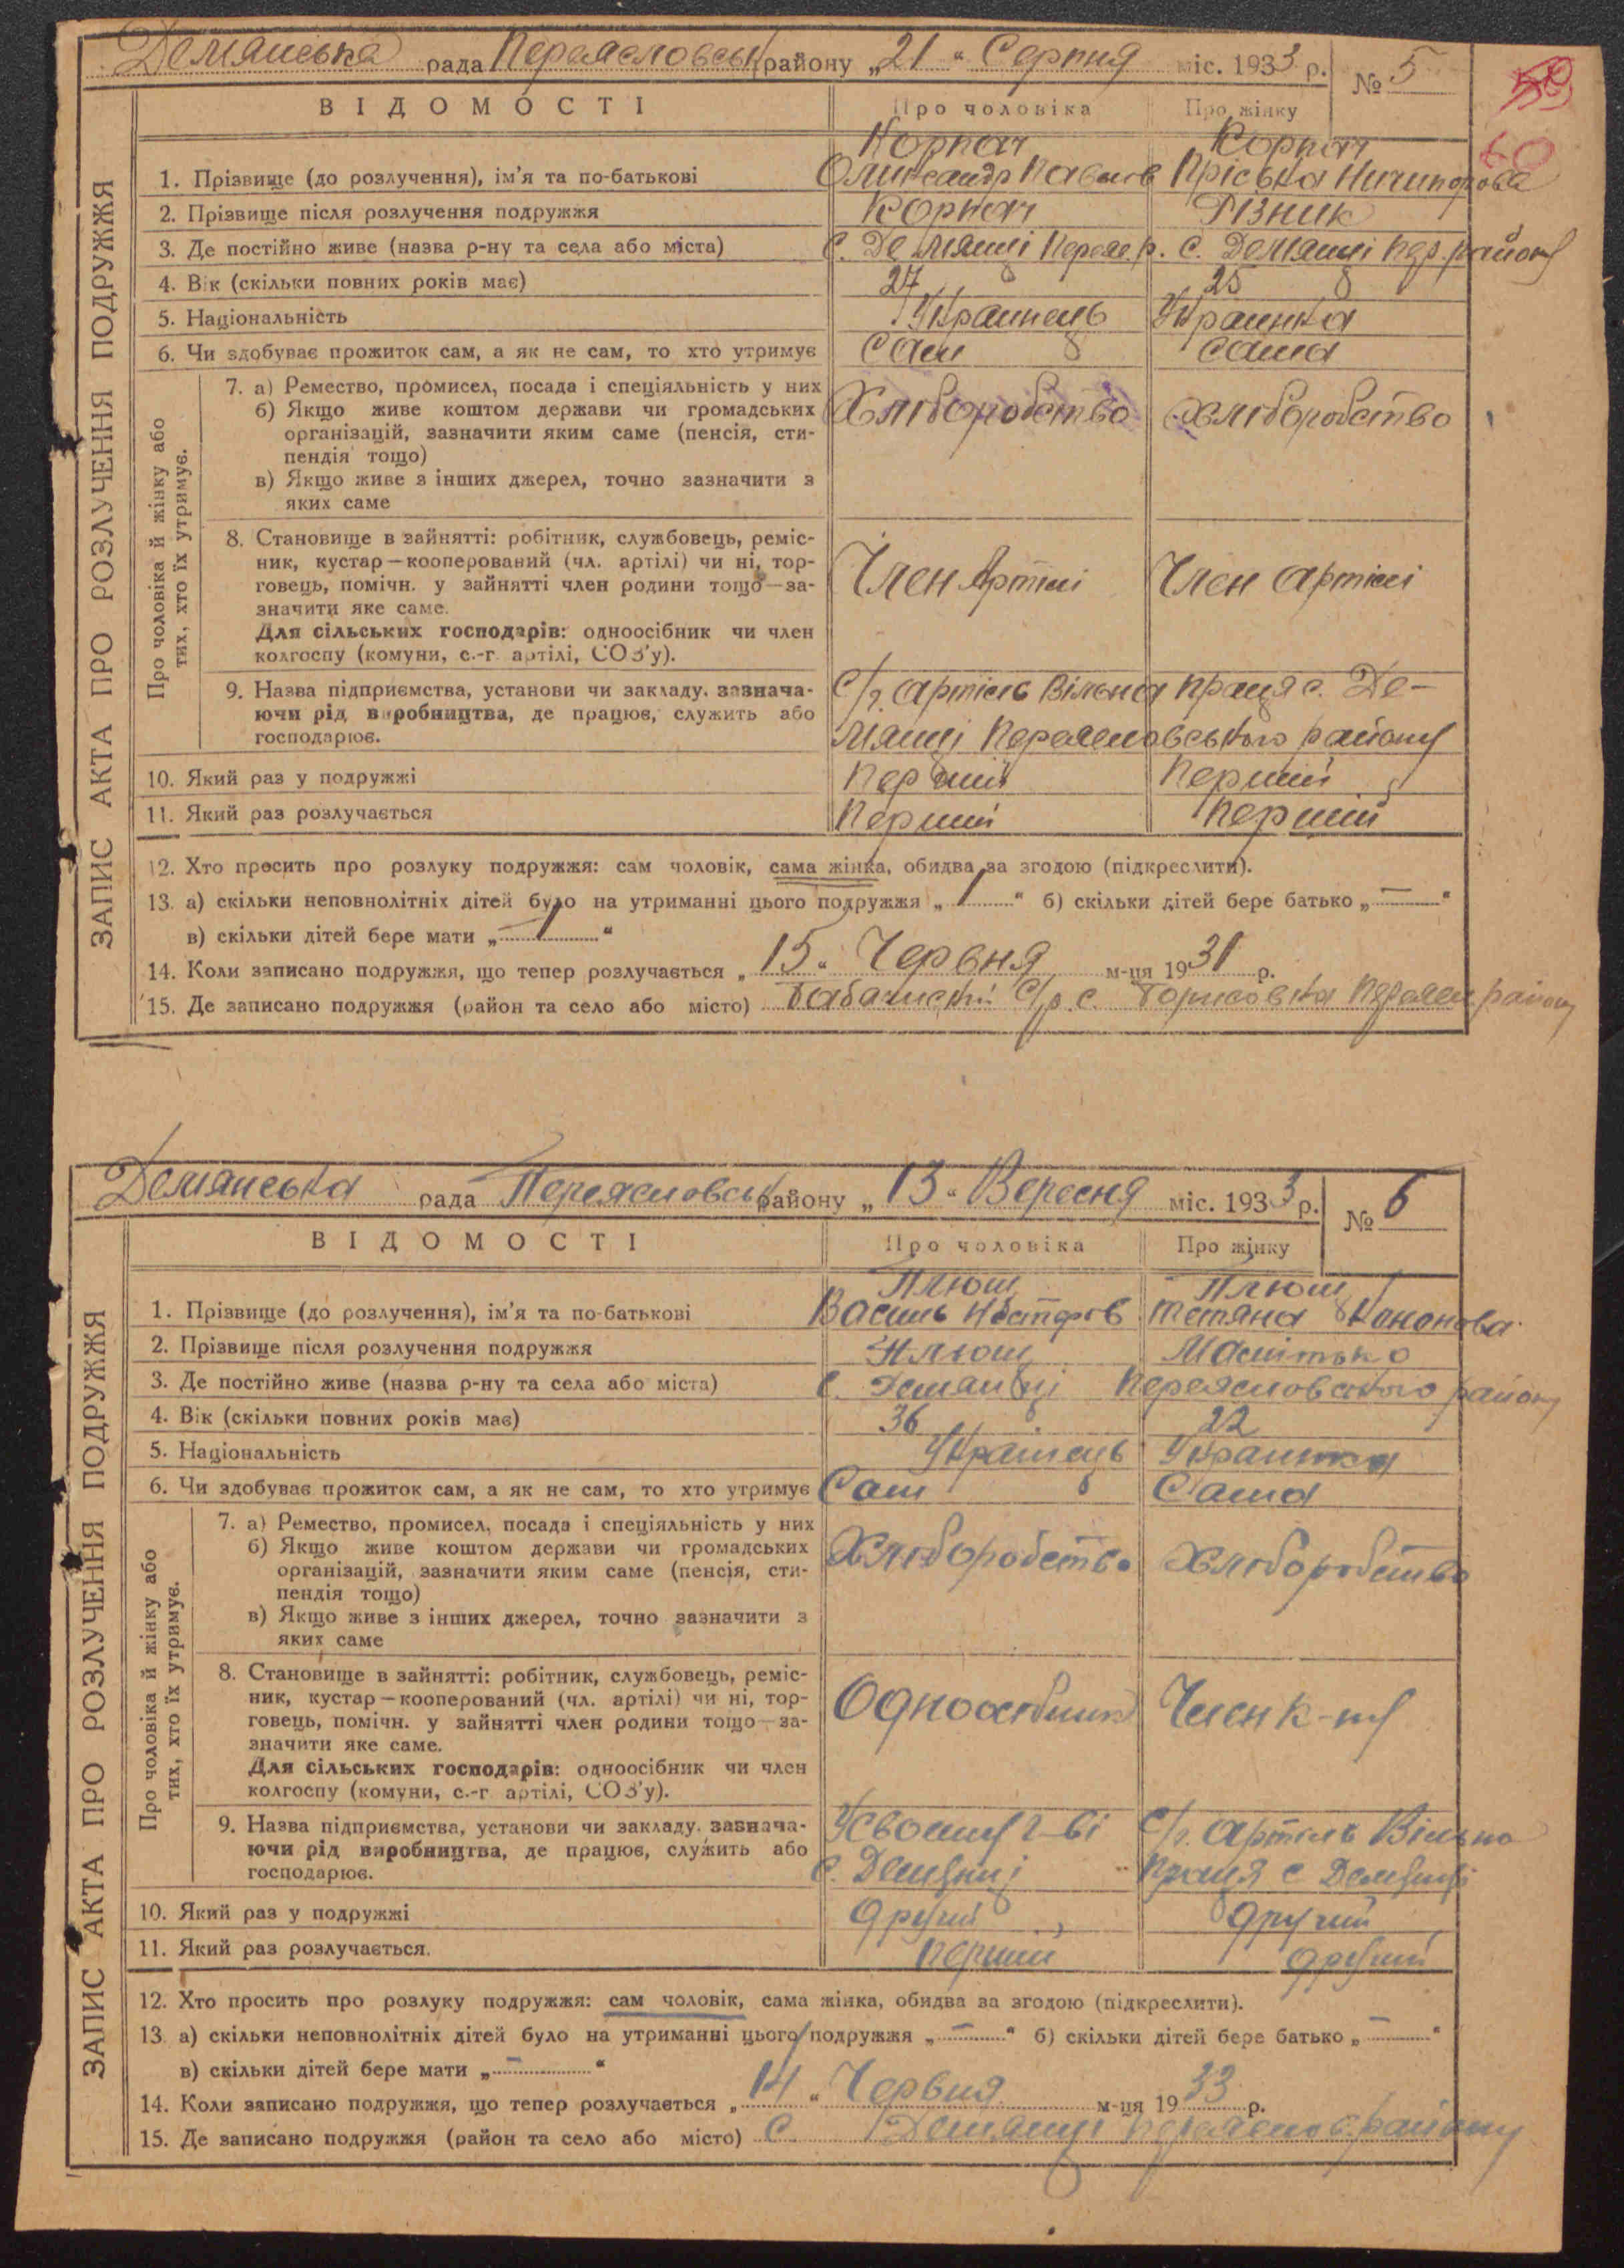 Демянська рада Переясловськ району „21“ Серпня міс. 1933 р. № 5
59
60
ВІДОМОСТІ Про чоловіка Про жінку
Корнач Корнач
1. Прізвище (до розлучення), ім'я та по-батькові Олександр Павлов Пріська Ничипорова
2. Прізвище після розлучення подружжя Корнач Різник
3. Де постійно живе (назва р-ну та села або міста) с. Демянці Переяс. р. с. Демянці Пер. району
4. Вік (скільки повних років має) 27 25
5. Національність Українець Українка
6. Чи здобуває прожиток сам, а як не сам, то хто утримує сам сама
7. а) Ремество, промисел, посада і спеціяльність у них Хліборобство Хліборобство
б) Якщо живе коштом держави чи громадських
організацій, зазначити яким саме (пенсія, сти-
пендія тощо)
в) Якщо живе з інших джерел, точно зазначити з
яких саме
8. Становище в зайнятті: робітник, службовець, реміс-
ник, кустар—кооперований (чл. артілі) чи ні, тор- Член Артілі Член артілі
говець, помічн. у зайнятті член родини тощо—за-
значити яке саме.
Для сільських господарів: одноосібник чи член
колгоспу (комуни, с.-г. артілі, СОЗ'у).
9. Назва підприємства, установи чи закладу, зазнача- С/г. артіль Вільна праця с. Де-
ючи рід виробництва, де працює, служить або мянці Переясловського району
господарює.
10. Який раз у подружжі Перший Перший
11. Який раз розлучається Перший Перший
12. Хто просить про розлуку подружжя: сам чоловік, сама жінка, обидва за згодою (підкреслити).
13. а) скільки неповнолітніх дітей було на утриманні цього подружжя „1“ б) скільки дітей бере батько „—“
в) скільки дітей бере мати „1“
14. Коли записано подружжя, що тепер розлучається „15“ Червня м-ця 1931 р.
15. Де записано подружжя (район та село або місто) с/р. с. Борисовка Переясл. району
ЗАПИС АКТА ПРО РОЗЛУЧЕННЯ ПОДРУЖЖЯ
Про чоловіка й жінку або
тих, хто їх утримує.
Демянська рада Переясловськ району „13“ Вересня міс. 1933 р. № 6
ВІДОМОСТІ Про чоловіка Про жінку
Плюш Плюш
1. Прізвище (до розлучення), ім'я та по-батькові Василь Тетяна Кононова
2. Прізвище після розлучення подружжя Плюш
3. Де постійно живе (назва р-ну та села або міста) с. Демянці Переясловського району
4. Вік (скільки повних років має) 36 22
5. Національність Українець Українка
6. Чи здобуває прожиток сам, а як не сам, то хто утримує Сам Сама
7. а) Ремество, промисел, посада і спеціяльність у них
б) Якщо живе коштом держави чи громадських Хліборобство Хліборобство
організацій, зазначити яким саме (пенсія, сти-
пендія тощо)
в) Якщо живе з інших джерел, точно зазначити з
яких саме
8. Становище в зайнятті: робітник, службовець, реміс-
ник, кустар—кооперований (чл. артілі) чи ні, тор- Одноосібник Член к-пу
говець, помічн. у зайнятті член родини тощо—за-
значити яке саме.
Для сільських господарів: одноосібник чи член
колгоспу (комуни, с.-г. артілі, СОЗ'у).
9. Назва підприємства, установи чи закладу, зазнача- Усвоєму г-ві С/г. артіль Вільна
ючи рід виробництва, де працює, служить або
господарює. с. Демянці праця с Демянці
10. Який раз у подружжі другий другий
11. Який раз розлучається. перший другий
12. Хто просить про розлуку подружжя: сам чоловік, сама жінка, обидва за згодою (підкреслити).
13. а) скільки неповнолітніх дітей було на утриманні цього подружжя „—“ б) скільки дітей бере батько „—“
в) скільки дітей бере мати „—“
14. Коли записано подружжя, що тепер розлучається „14“ Червня м-ця 1933 р.
15. Де записано подружжя (район та село або місто) с. Демянці Переяслов. району
ЗАПИС АКТА ПРО РОЗЛУЧЕННЯ ПОДРУЖЖЯ
Про чоловіка й жінку або
тих, хто їх утримує.